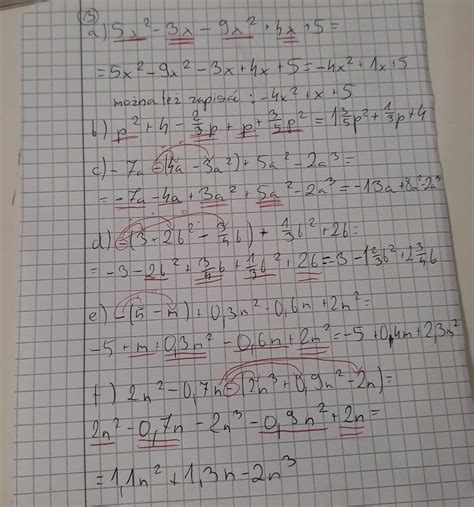 13
a) 5x² - 3x - 9x² + 4x + 5 =
= 5x² - 9x² - 3x + 4x + 5 = -4x² + 1x + 5
można też zapisać: -4x² + x + 5
b) p² + 4 - 2/3 p + p + 3/5 p² = 1 3/5 p² + 1/3 p + 4
c) -7a - (4a - 3a²) + 5a² - 2a³ =
= -7a - 4a + 3a² + 5a² - 2a³ = -13a + 8a² - 2a³
d) -(3 + 2b² - 3/4 b) + 1/3 b² + 2b =
= -3 - 2b² + 3/4 b + 1/3 b² + 2b = -3 - 1 2/3 b² + 2 3/4 b
e) -(5 - m) + 0,3n² - 0,6n + 2n² =
-5 + m + 0,3n² - 0,6n + 2n² = -5 + 0,4n + 2,3n²
f) 2n² - 0,7n - (2n³ + 0,9n² - 2n) =
2n² - 0,7n - 2n³ - 0,9n² + 2n =
= 1,1n² + 1,3n - 2n³